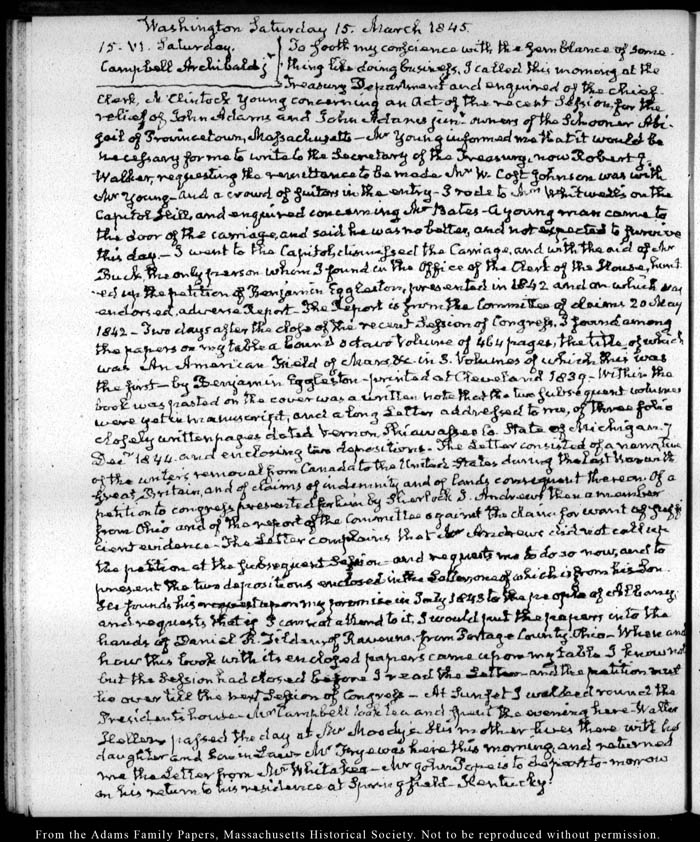 Washington Saturday 15. March 1845.
15. VI. Saturday. To sooth my conscience with the semblance of some-
Campbell Archibald jr thing like doing business, I called this morning at the
Treasury Department and enquired of the chief
Clerk, McClintock Young concerning an Act of the recent Session, for the
relief of John Adams and John Adams junr. owners of the Schooner Abi-
gail of Provincetown, Massachusetts - Mr Young informed me that it would be
necessary for me to write to the Secretary of the Treasury, now Robert J.
Walker, requesting the remittance to be made. Mr W. Cost Johnson was with
Mr Young - and a crowd of suitors in the entry - I rode to Mrs Whitwell's on the
Capitol Hill, and enquired concerning Mr Bates - A young man came to
the door of the carriage, and said he was no better, and not expected to survive
this day. - I went to the Capitol, dismissed the Carriage, and with the aid of Mr
Buck, the only person whom I found in the Office of the Clerk of the House, hunt-
ed up the petition of Benjamin Eggleston, presented in 1842 and on which was
endorsed, adverse Report. The Report is from the Committee of claims 20 May
1842 - Two days after the close of the recent Session of Congress, I found among
the papers on my table a bound octavo Volume of 464 pages, the title of which
was An American Field of Mars, &c. in 3. Volumes of which this was
the first - by Benjamin Eggleston - printed at Cleveland 1839 - Within the
book was pasted on the cover was a written note that the two subsequent volumes
were yet in manuscript, and a long Letter addressed to me, of three folio
closely written pages dated Vernon, Shiawassee Co. State of Michigan. 7
Decr 1844. and enclosing two depositions. - The Letter consisted of a narrative
of the writer's removal from Canada to the United States during the last War with
Great Britain, and of claims of indemnity and of lands consequent thereon. Of a
petition to congress presented for him by Sherlock J. Andrews then a member
from Ohio and of the report of the Committee against the claim for want of suffi-
cient evidence - The Letter complains that Mr Andrews did not call up
the petition at the subsequent Session - and requests me to do so now, and to
present the two depositions enclosed in the Letter, one of which is from his Son.
He founds his request upon my promise in July 1843 to the people of Albany,
and requests, that if I cannot attend to it, I would put the papers into the
hands of Daniel R. Tilden, of Ravenna, from Portage County, Ohio - When and
how this book with its enclosed papers came upon my table I know not
but the Session had closed before I read the Letter - and the petition must
lie over till the next Session of Congress - At Sunset I walked round the
President's house - Mr Campbell took tea and spent the evening here - Walter
Hellen passed the day at Mr Moody's. His mother lives there with her
daughter and Son in Law - Mr Frye was here this morning, and returned
me the Letter from Mr Whitaker - Mr John Pope is to depart to-morrow
on his return to his residence at Springfield - Kentucky.
From the Adams Family Papers, Massachusetts Historical Society. Not to be reproduced without permission.